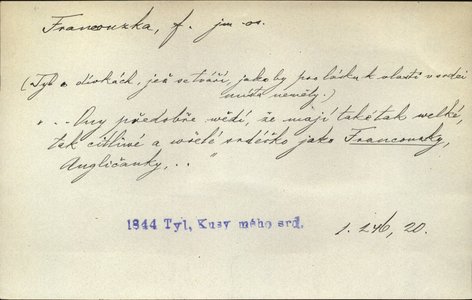 Francouzka, f. jm. os.
(Tyl o dívkách, jež se tváří, jako by pro lásku k vlasti v srdci
místa neměly.)
"... Ony předobře vědí, že mají také tak velké,
tak citlivé a vřelé srdéčko jako Francouzky,
Angličanky,.. "
1844 Tyl, Kusy mého srd.
1. 246, 20.